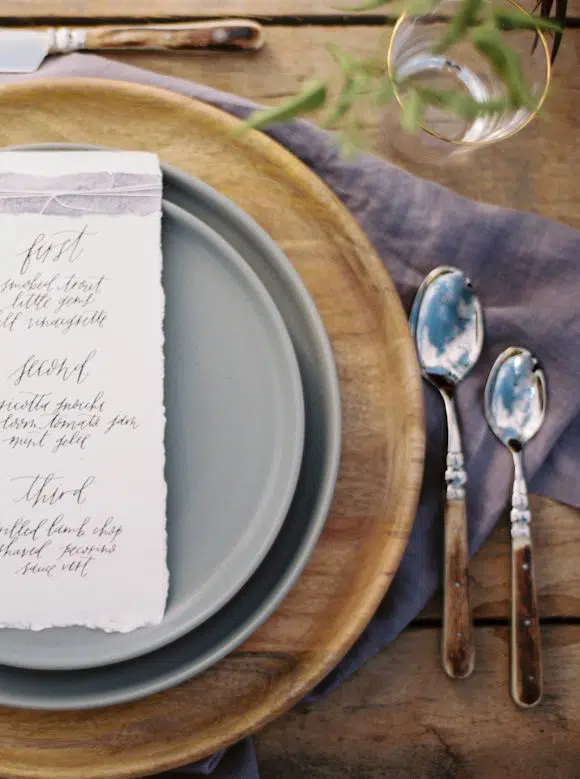 first
smoked trout
little gems
ll vinaigrette
second
icotta gnocchi
loom tomato jam
mint gelée
third
rilled lamb chop
shaved pecorino
sauce vert